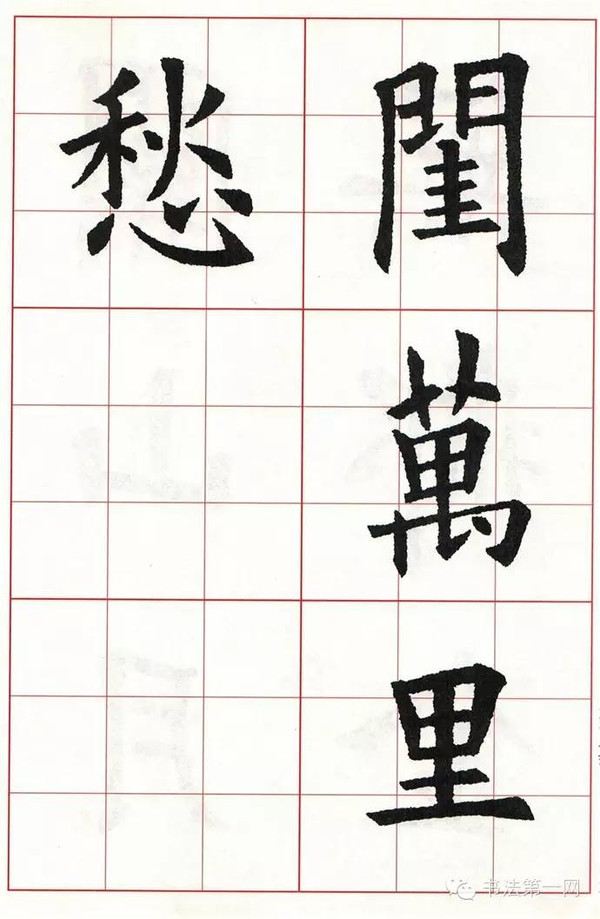 閨萬里
愁
书法第一网